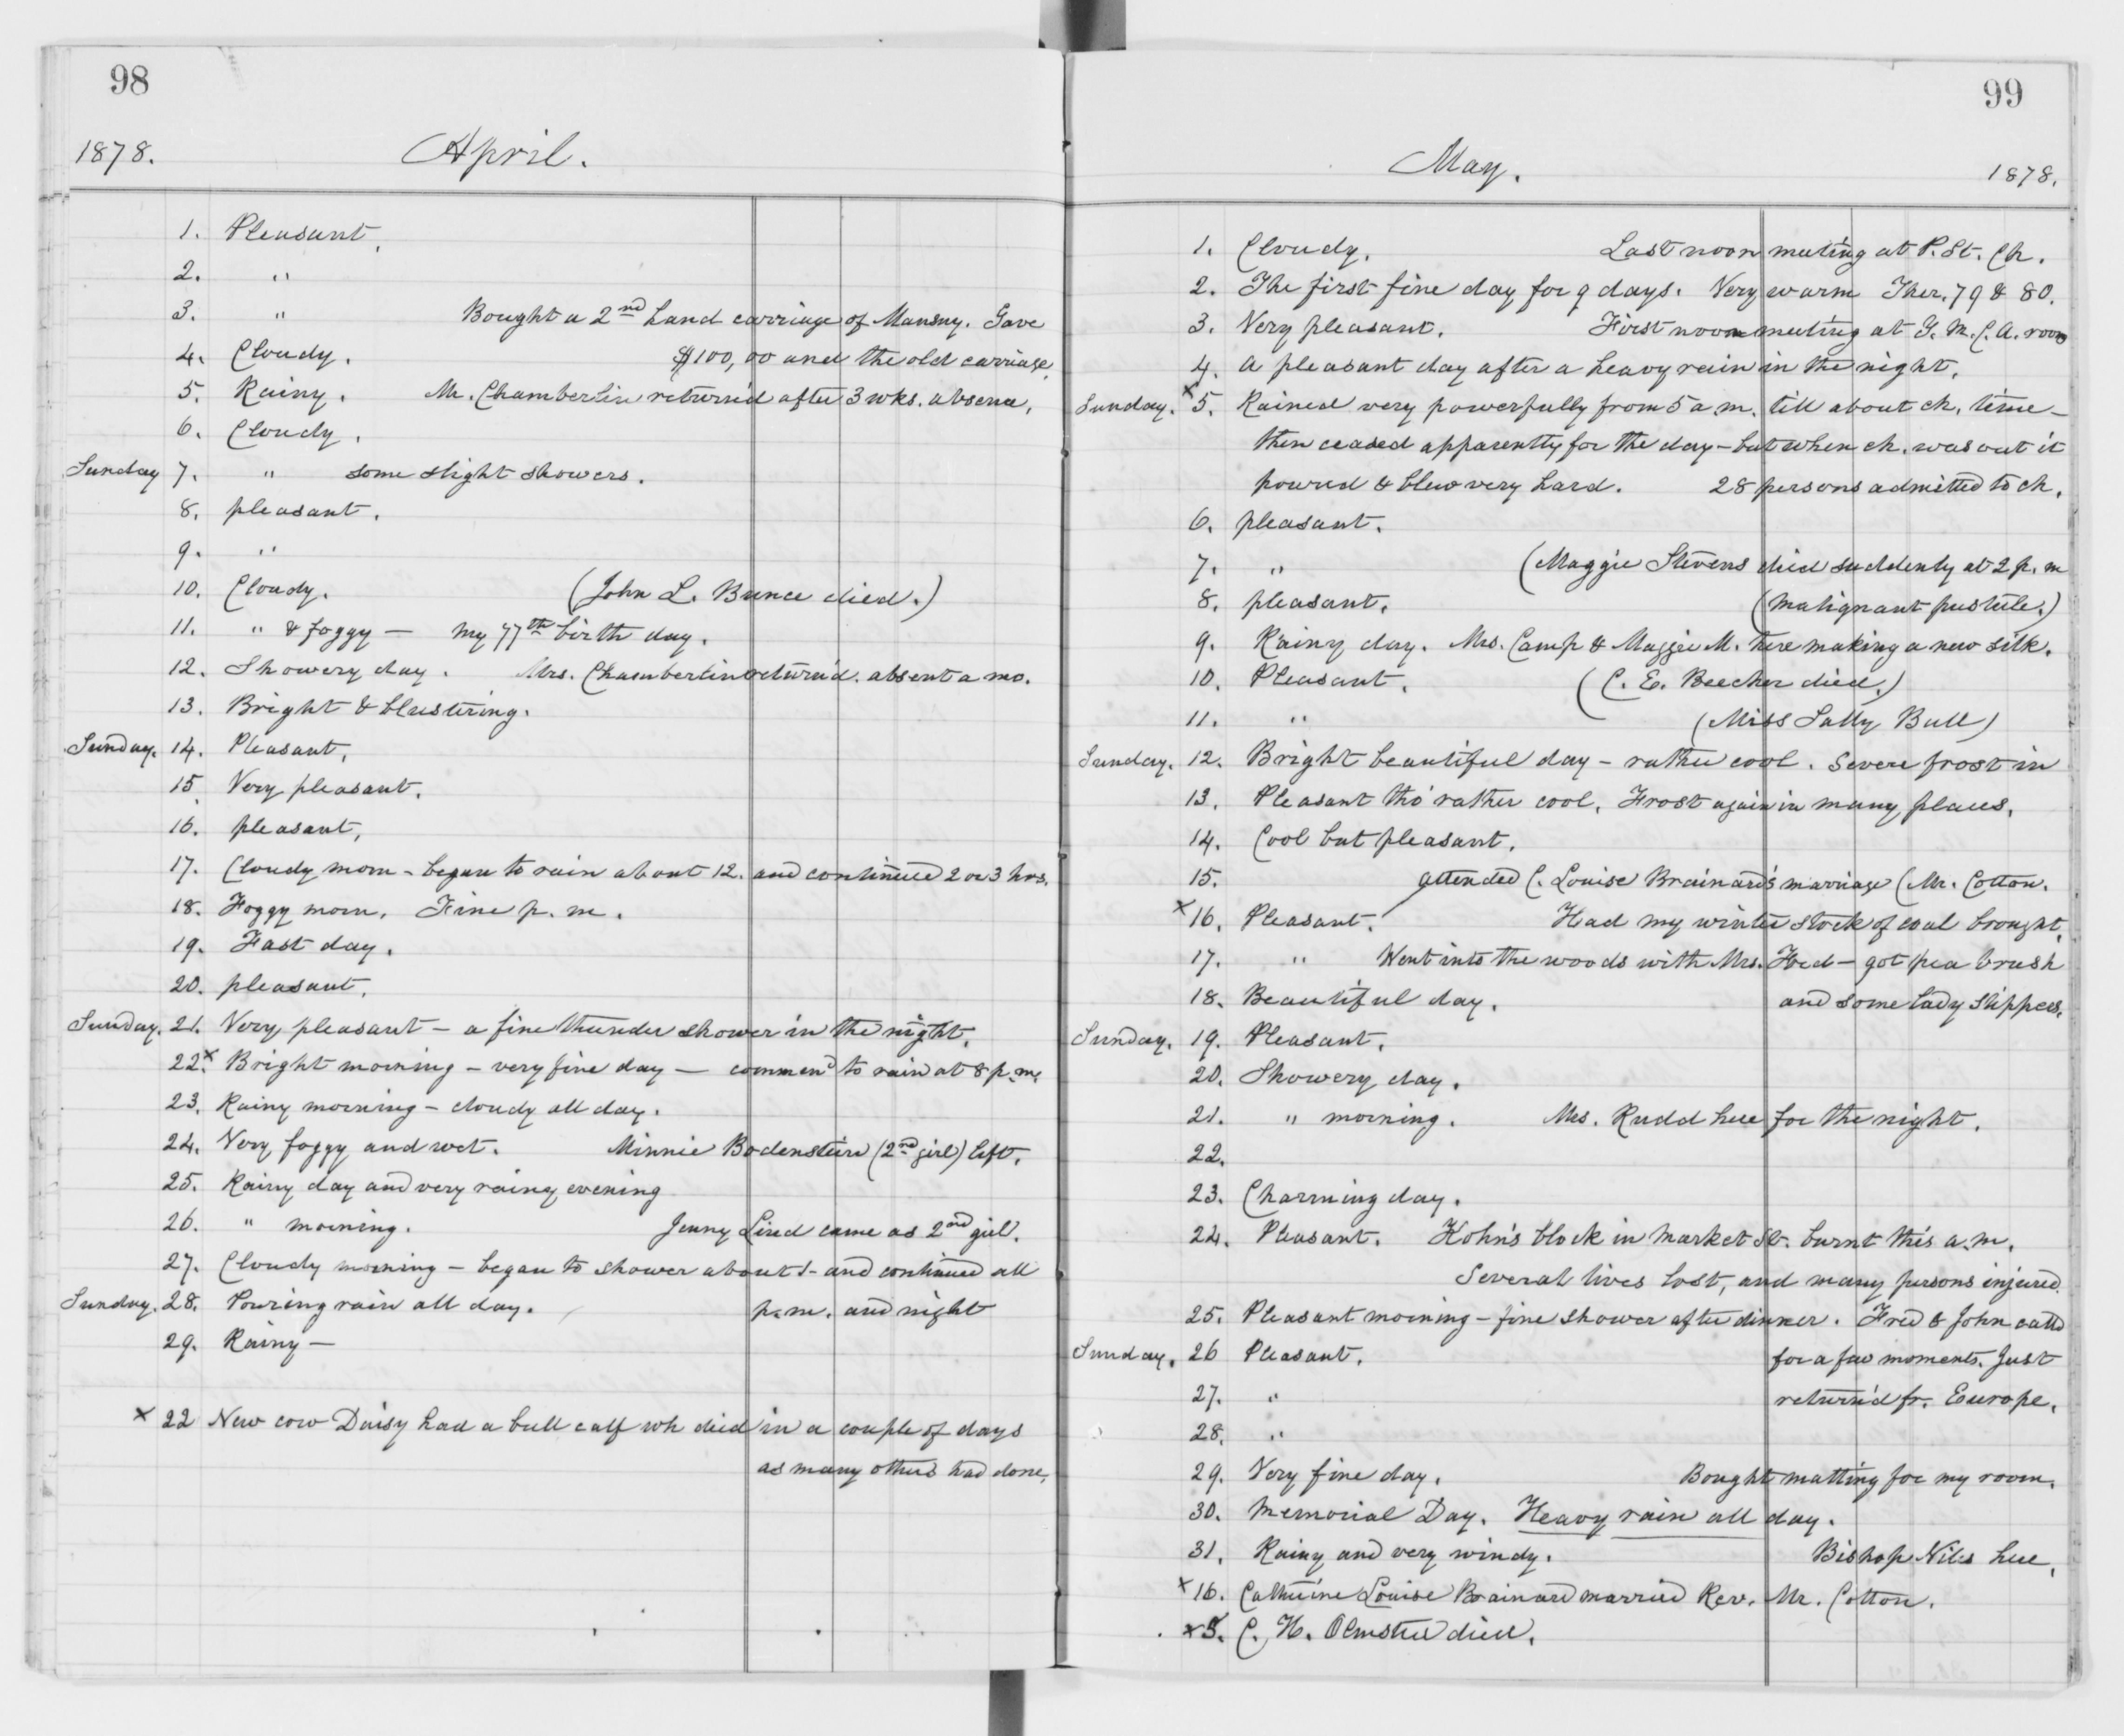 98
1878. April.
1. Pleasant.
2. "
3. " Bought a 2nd hand carriage of Mansuy. Gave
4. Cloudy. $100,00 and the old carriage.
5. Rainy. Mr. Chamberlin return'd after 3 wks. absence.
6. Cloudy.
Sunday 7. " some slight showers.
8. pleasant.
9. "
10. Cloudy. (John L. Bunce died.)
11. " & foggy — my 77th birth day.
12. Showery day. Mrs. Chamberlin return'd. absent a mo.
13. Bright & blustering.
Sunday. 14. Pleasant.
15. Very pleasant.
16. pleasant.
17. Cloudy morn - began to rain about 12. and continued 2 or 3 hrs.
18. Foggy morn. Fine p. m.
19. Fast day.
20. pleasant.
Sunday. 21. Very pleasant - a fine thunder shower in the night.
22.x Bright morning - very fine day — commend to rain at 8 p.m.
23. Rainy morning - cloudy all day.
24. Very foggy and wet. Minnie Bodenstein (2nd girl) left.
25. Rainy day and very rainy evening
26. " morning. Jenny Lind came as 2nd girl.
27. Cloudy morning - began to shower about 1 - and continued all
Sunday. 28. Pouring rain all day. p.m. and night
29. Rainy —
x 22 New cow Daisy had a bull calf wh died in a couple of days
as many others had done.
99
May. 1878.
1. Cloudy. Last noon meeting at P. St. Ch.
2. The first fine day for 9 days. Very warm Ther. 79 & 80.
3. Very pleasant. First noon meeting at Y. M. C. A. room
4. A pleasant day after a heavy rain in the night.
Sunday. x5. Rained very powerfully from 5 a.m. till about ch. time -
then ceased apparently for the day - but when ch. was out it
poured & blew very hard. 28 persons admitted to ch.
6. pleasant.
7. " (Maggie Stevens died suddenly at 2 p. m
8. pleasant. (malignant pustule.)
9. Rainy day. Mrs. Camp & Maggie M. here making a new silk.
10. Pleasant. (C. E. Beecher died.)
11. " (Miss Sally Bull)
Sunday. 12. Bright beautiful day - rather cool. Severe frost in
13. Pleasant tho' rather cool. Frost again in many places.
14. Cool but pleasant.
15. attended C. Louise Brainard's marriage (Mr. Cotton.
x16. Pleasant. Had my winter stock of coal brought.
17. " Went into the woods with Mrs. Fred - got pea brush
18. Beautiful day. and some lady slippers.
Sunday. 19. Pleasant.
20. Showery day.
21. " morning. Mrs. Rudd here for the night.
22.
23. Charming day.
24. Pleasant. Kohn's block in Market St. burnt this a.m.
Several lives lost, and many persons injured.
25. Pleasant morning - fine shower after dinner. Fred & John calld
Sunday. 26 Pleasant. for a few moments. Just
27. " return'd fr. Europe.
28. "
29. Very fine day. Bought matting for my room.
30. Memorial Day. Heavy rain all day.
31. Rainy and very windy. Bishop Niles here.
x16. Catherine Louise Brainard married Rev. Mr. Cotton.
x5. C. H. Olmsted died.